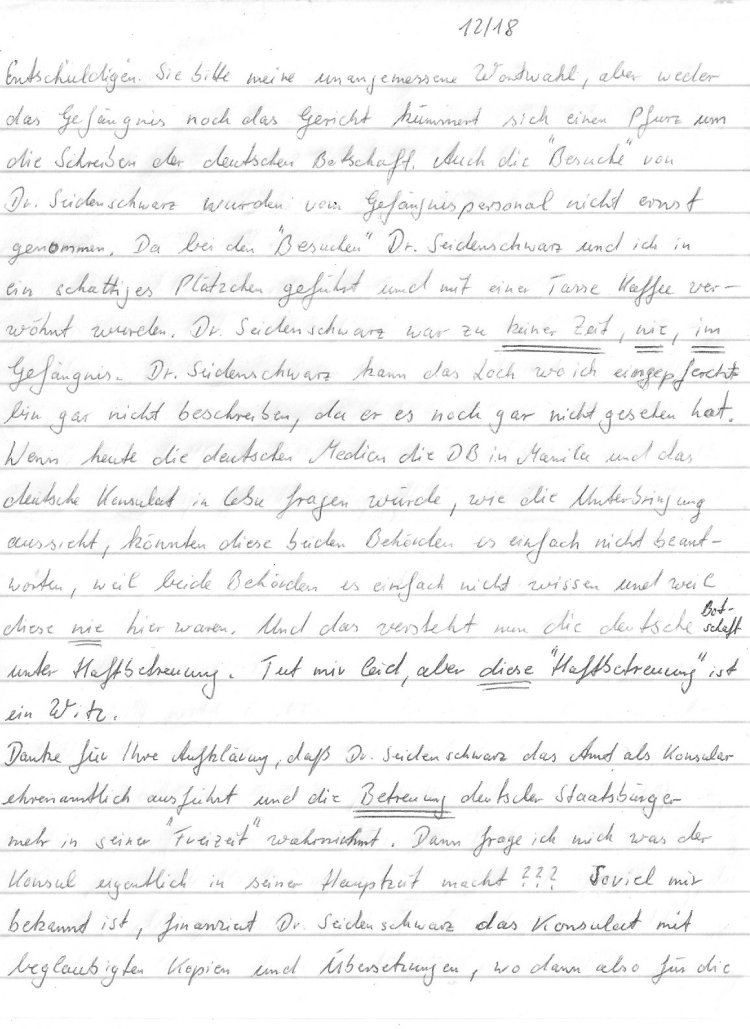 12/18
Entschuldigen Sie bitte meine unangemessene Wortwahl, aber weder
das Gefängnis noch das Gericht kümmert sich einen Pfurz um
die Schreiben der deutschen Botschaft. Auch die "Besuche" von
Dr. Seidenschwarz wurden vom Gefängnispersonal nicht ernst
genommen. Da bei den "Besuchen" Dr. Seidenschwarz und ich in
ein schattiges Plätzchen geführt und mit einer Tasse Kaffee ver-
wöhnt wurden. Dr. Seidenschwarz war zu keiner Zeit, nie, im
Gefängnis. Dr. Seidenschwarz kann das Loch wo ich eingepfercht
bin gar nicht beschreiben, da er es noch gar nicht gesehen hat.
Wenn heute die deutschen Medien die DB in Manila und das
deutsche Konsulat in Cebu fragen würde, wie die Unterbringung
aussieht, könnten diese beiden Behörden es einfach nicht beant-
worten, weil beide Behörden es einfach nicht wissen und weil
diese nie hier waren. Und das versteht nun die deutsche Bot-
schaft
unter Haftbetreuung. Tut mir leid, aber diese "Haftbetreuung" ist
ein Witz.
Danke für Ihre Aufklärung, daß Dr. Seidenschwarz das Amt als Konsular
ehrenamtlich ausführt und die Betreuung deutscher Staatsbürger
mehr in seiner "Freizeit" wahrnimmt. Dann frage ich mich was der
Konsul eigentlich in seiner Hauptzeit macht??? Soviel mir
bekannt ist, finanziert Dr. Seidenschwarz das Konsulat mit
beglaubigten Kopien und Übersetzungen, wo dann also für die